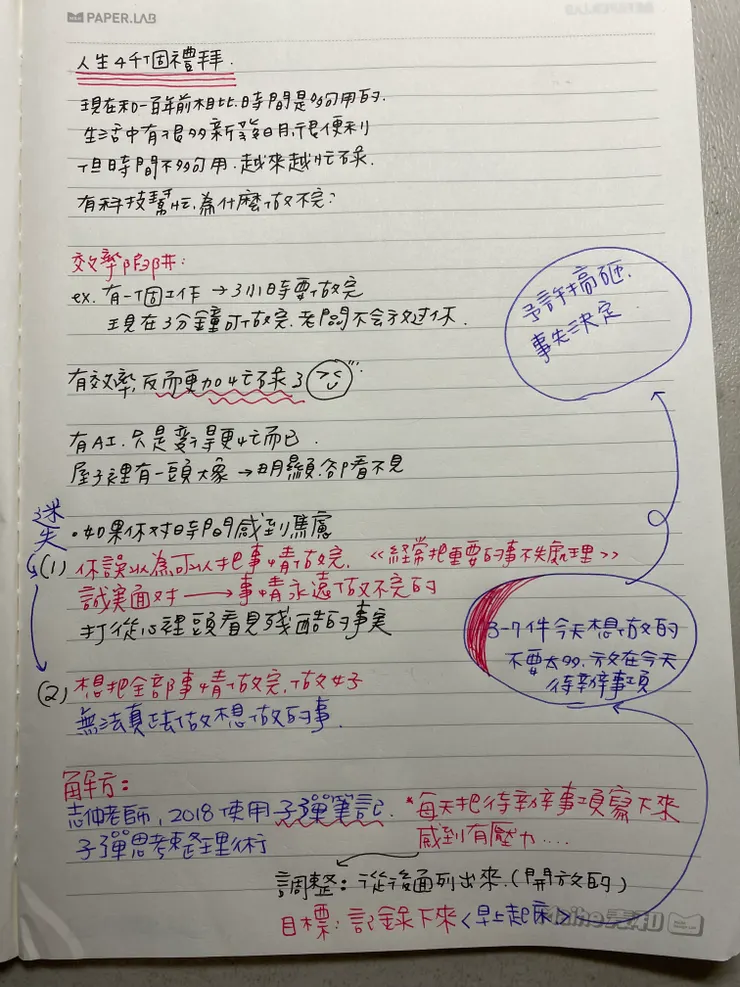 PAPER.LAB
人生4千個禮拜.
現在和一百年前相比.時間是夠用的.
生活中有很多新發明.很便利
但時間不夠用.越來越忙碌.
有科技幫忙.為什麼做不完?
效率陷阱:
ex. 有一個工作 → 3小時要做完
現在3分鐘可做完.老闆不会放过你.
予許搞砸.
事先決定
有效率,反而更加忙碌了
有AI.只是變得更忙而已.
屋子裡有一頭大象 → 明顯.卻看不見
迷失
・如果你对時間感到焦慮
(1) 你誤以為可以把事情做完. 《經常把重要的事不先處理》
誠実面对 → 事情永遠做不完的
打從心裡頭看見残酷的事実
3-7件今天想做的
不要太多.放在今天
待辦事項
(2) 想把全部事情做完.做好
無法真正去做想做的事.
解方:
志仲老師,2018使用子彈筆記.
子彈思考整理術
*每天把待辦事項寫下來
感到有壓力....
調整: 從後面列出來.(開放的)
目標: 記錄下來<早上起床>